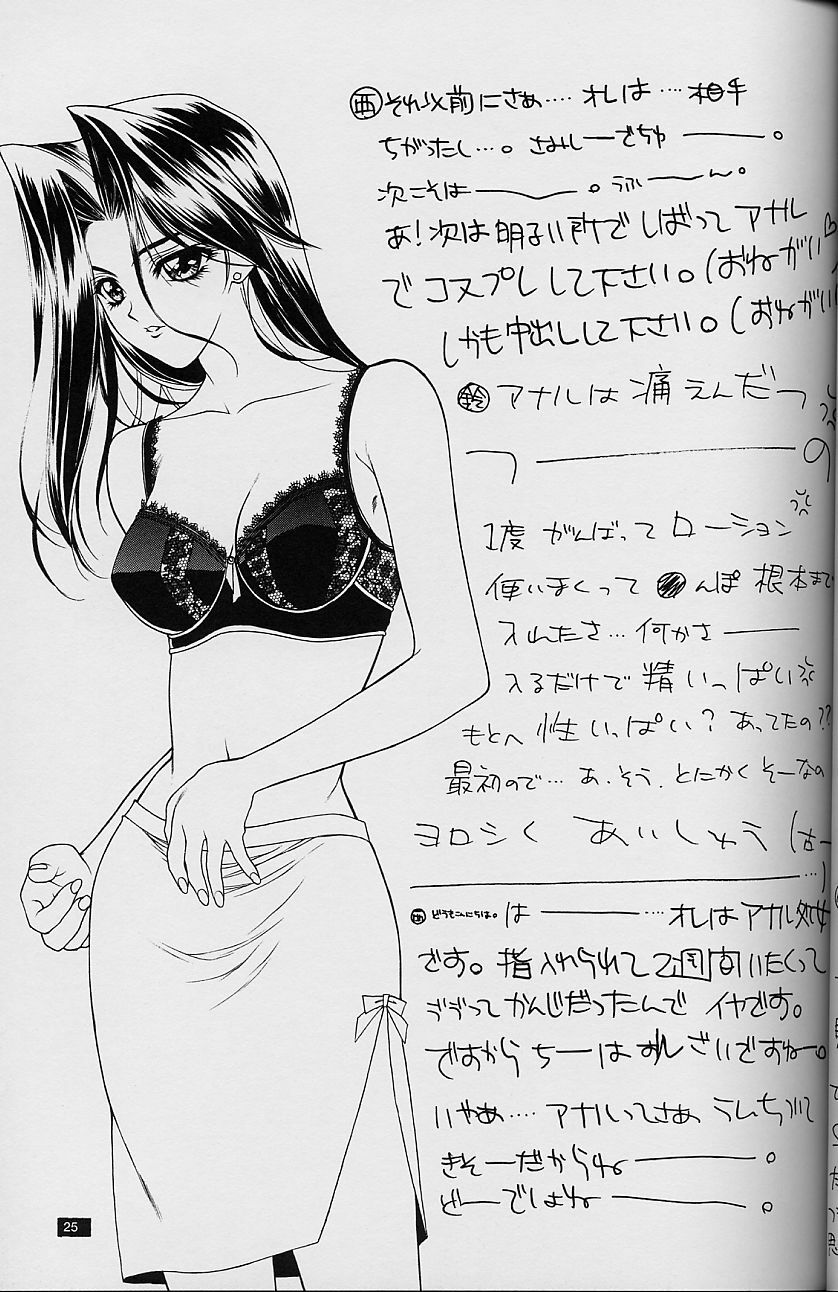 西 それ以前にさぁ…. オレは…. 相手
ちがったし…。さみしーでちゅ ー。
次こそは ー。うふ〜ん。
あ! 次は明るい所でしばってアナル
でコスプレして下さい。(おねがい♡
しかも中出しして下さい。(おねがい
鈴 アナルは痛えんだっ
つ ー の
1度 がんばって ローション
使いまくって ●んぽ 根本まで
入れたさ… 何かさ ー
入るだけで精いっぱい
もとへ 性いっぱい? あってたの??
最初ので… あ、そう、とにかくそーなの
ヨロシく あいしゅう (古ー
…)
西 どうもこんにちは。は ー …. オレはアナル処女
です。指入れられて2週間いたくって
ってかんじだったんで イヤです。
ですから ちーは ずれざいですねー。
いやぁ…. アナルってさぁ うんちついて
きそーだからね ー。
どーでしょね ー。
25